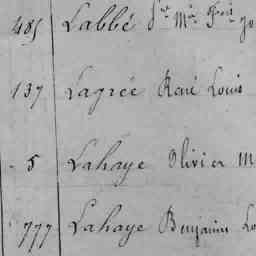 485 Labbé Jne Mie Fçoise
137 Lagrée René Louis
5 Lahaye Olivier M
777 Lahaye Benjamin Lo